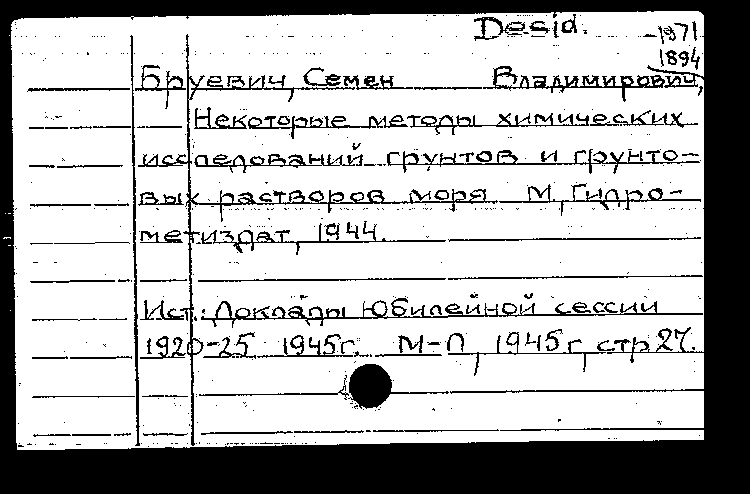 Desid.
-1971
1894
Бруевич, Семен Владимирович,
Некоторые методы химических
исследований грунтов и грунто-
вых растворов моря М., Гидро-
метиздат, 1944.
Ист.: Доклады Юбилейной сессии
1920-25 1945г. М-Л, 1945г, стр 27.